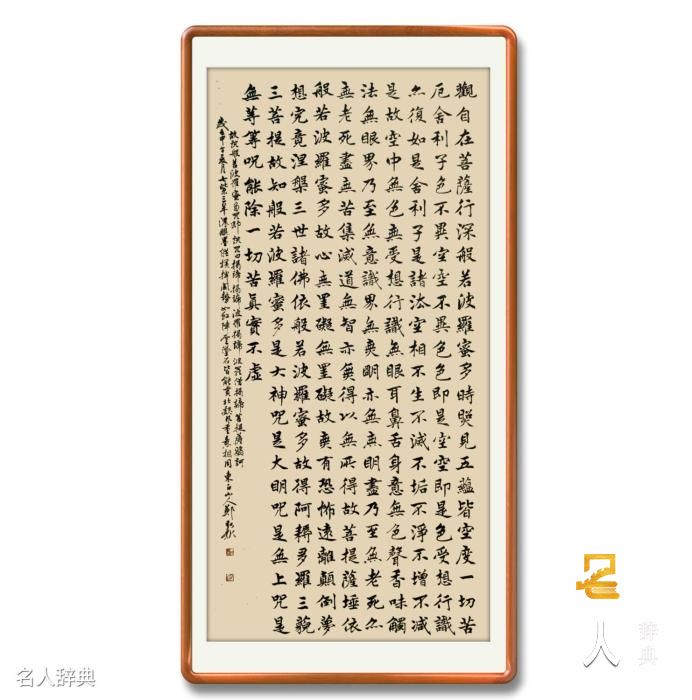 觀自在菩薩行深般若波羅蜜多時照見五蘊皆空度一切苦
厄舍利子色不異空空不異色色即是空空即是色受想行識
亦復如是舍利子是諸法空相不生不滅不垢不淨不增不減
是故空中無色無受想行識無眼耳鼻舌身意無色聲香味觸
法無眼界乃至無意識界無無明亦無無明盡乃至無老死亦
無老死盡無苦集滅道無智亦無得以無所得故菩提薩埵依
般若波羅蜜多故心無罣礙無罣礙故無有恐怖遠離顛倒夢
想究竟涅槃三世諸佛依般若波羅蜜多故得阿耨多羅三藐
三菩提故知般若波羅蜜多是大神咒是大明咒是無上咒是
無等等咒能除一切苦真實不虛
故說般若波羅蜜多咒即說咒曰揭諦揭諦波羅揭諦波羅僧揭諦菩提薩婆訶
名人辞典
名人辞典